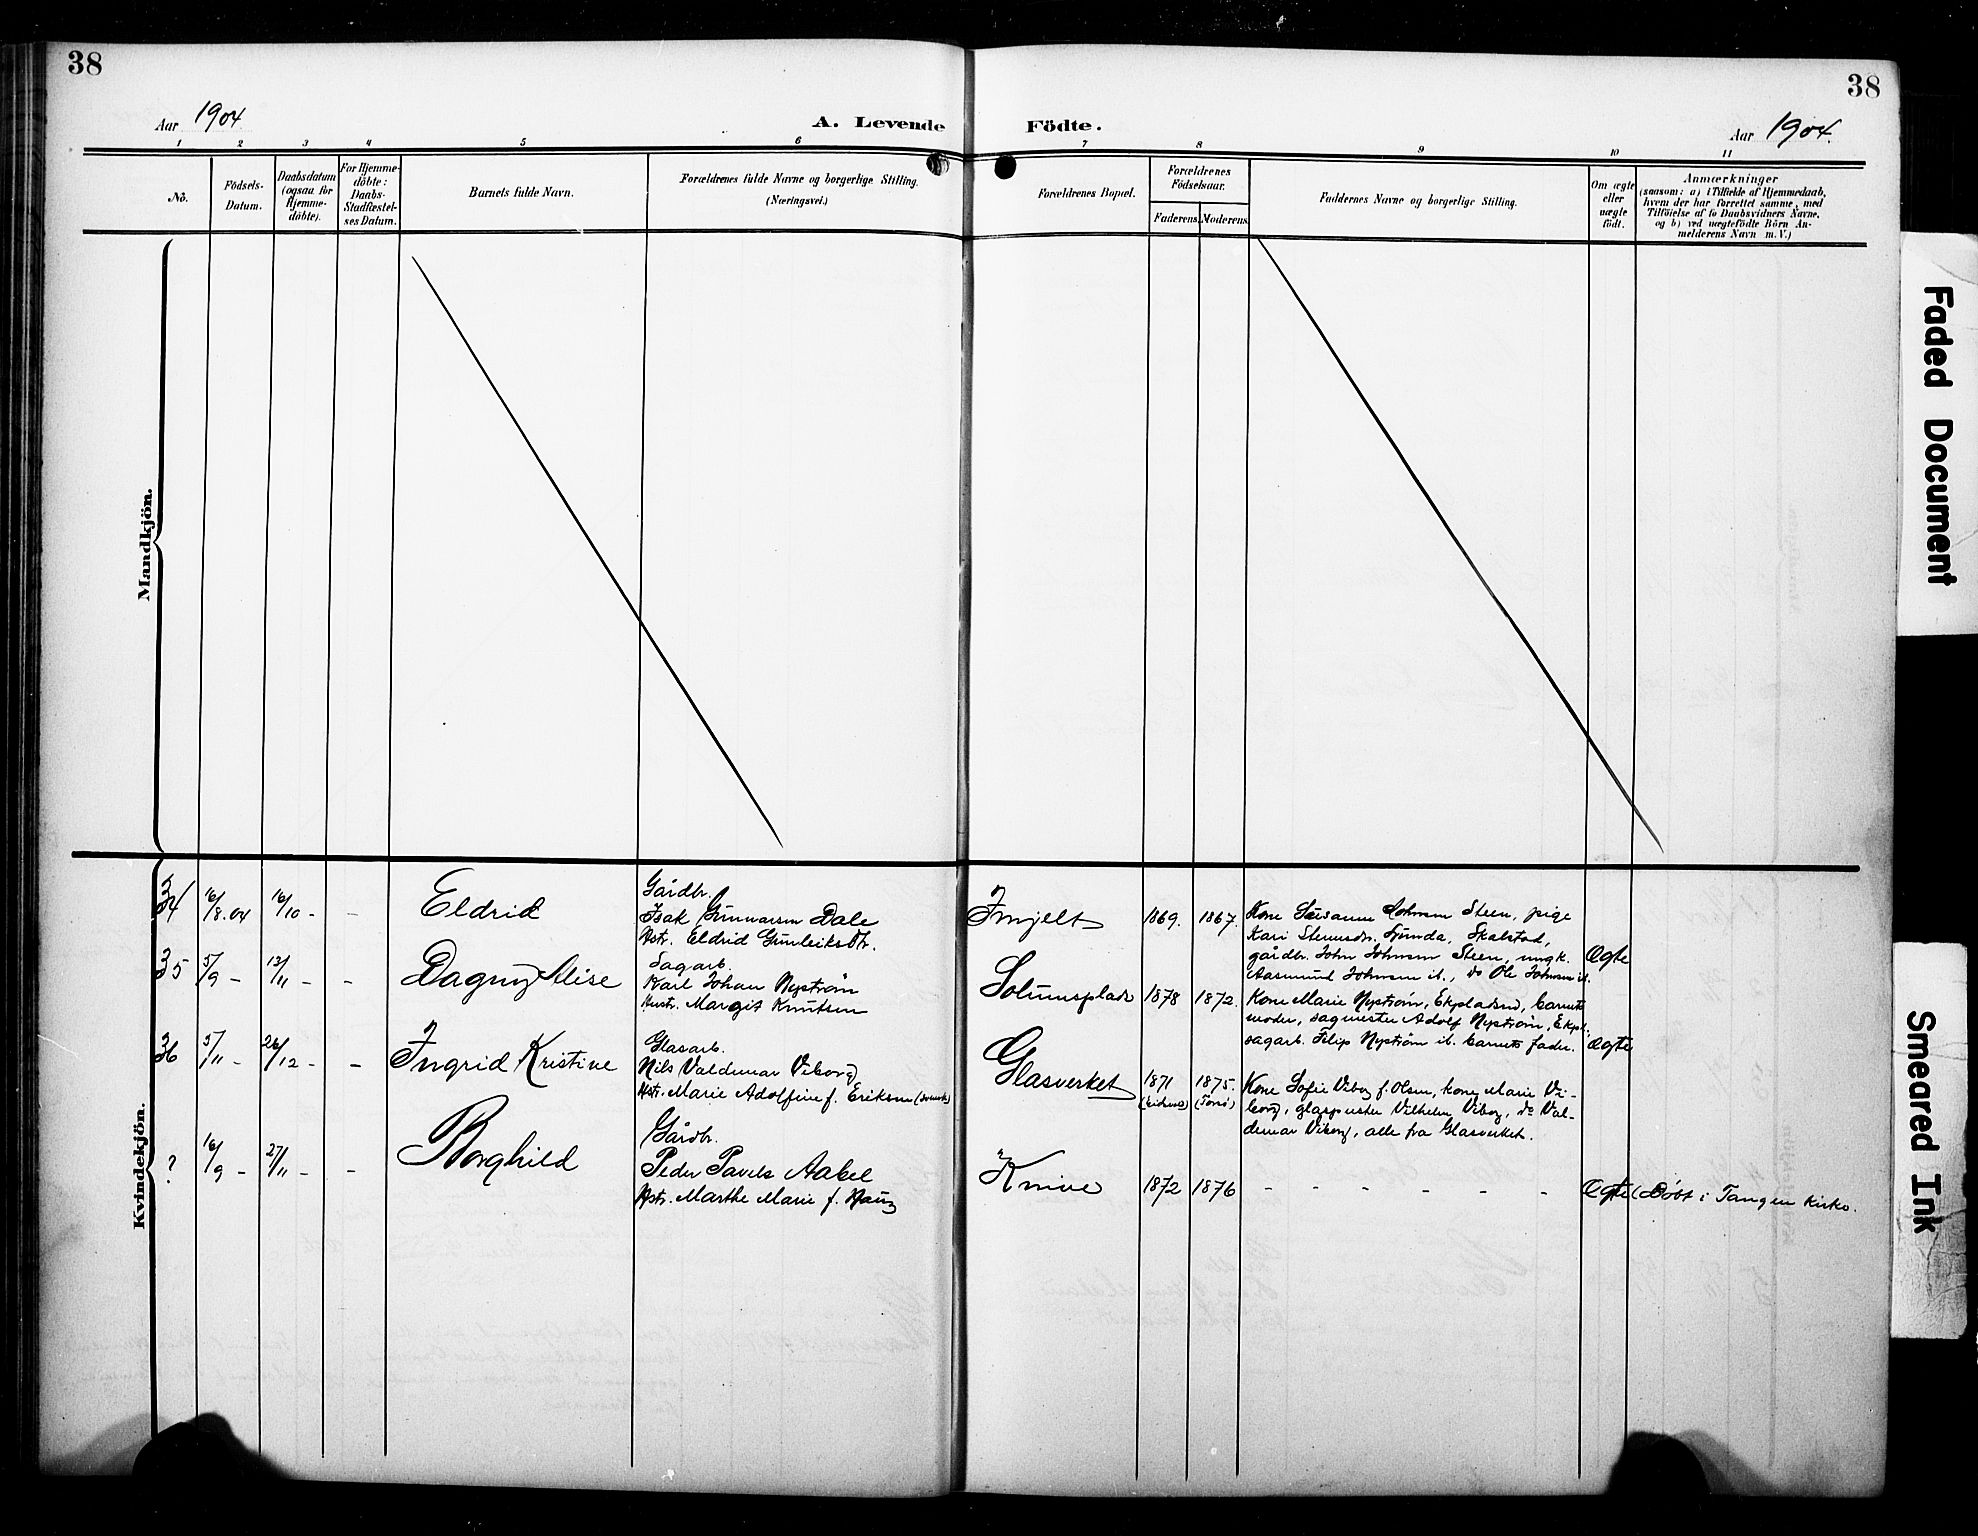 38
38
Aar 1904
A. Levende Födte.
Aar 1904.
1 2 3 4 5 6 7 8 9 10 11
No.
Födsels-
Datum.
Daabsdatum
(ogsaa for
Hjemme-
döbte).
For Hjemme-
döbte:
Daabs-
Stadfæstel-
ses Datum.
Barnets fulde Navn.
Forældrenes fulde Navne og borgerlige Stilling.
(Næringsvei.)
Forældrenes Bopæl.
Forældrenes
Födselsaar.
Faderens. Moderens.
Faddernes Navne og borgerlige Stilling.
Om ægte
eller
uægte
födt.
Anmærkninger
(saasom: a) i Tilfælde af Hjemmedaab,
hvem der har forrettet samme, med
Tilföielse af to Daabsvidners Navne,
og b) ved uægtefödte Börn An-
melderens Navn m. V.)
Mandkjön.
Kvindekjön.
34 16/8.04 16/10 - -
Eldrid
Gårdbr.
Isak Gunnarsen Dale
Hstr. Eldrid Gunleiksdtr.
Imjelt
1869. 1867.
Kone Susanne Johnsen Steen, pige
Kari Stensdr. Ljunda, Skalstad,
gårdbr. John Johnsen Steen, ungk.
Aasmund Johnsen ib., do Ole Johnsen ib.
Ægte
35 5/9 - 13/11 - -
Dagny Alise
Sagarb.
Karl Johan Nyström
Hustr. Margit Knutsen
Solumsplads
1878 1872.
Kone Marie Nyström, Ekpladsen, barnets
moder, sagmester Adolf Nyström, Ekpl.,
sagarb. Filip Nyström ib. barnets fader.
Ægte
36 5/11 - 26/12 - -
Ingrid Kristine
Glasarb.
Nils Valdemar Viborg
Hstr. Marie Adolfine f. Eriksen (svensk)
Glasverket
1871 1875.
Kone Sofie Viborg f. Olsen, kone Marie Vi-
borg, glaspuster Vilhelm Viborg, do Val-
demar Viborg, alle fra Glasverket.
? 16/9 - 27/11 - -
Borghild
Gårdbr.
Peder Pavels Aabel
Hstr. Marthe Marie f. Haug
Knive
1872 1876 - - - - - -
Ægte (Döbt i Tangen Kirke.
Faded Document
Smeared Ink